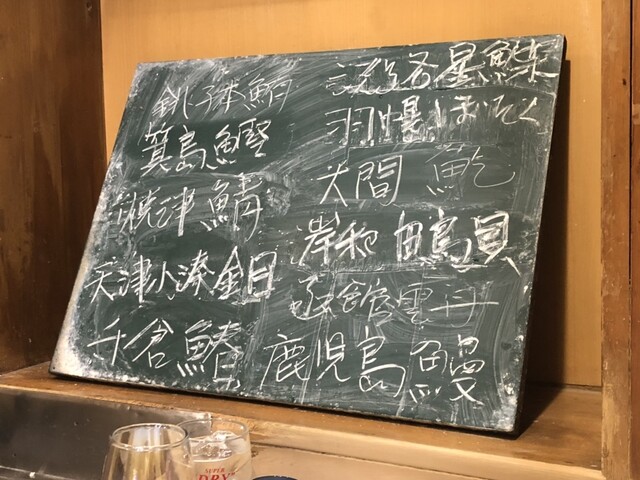 銚子本鮪
箕島鰹
焼津鯖
天津小湊金目
千倉鰆
星鰈
羽幌
大間
岸和田鳥貝
函館雲丹
鹿児島鰻
SUPER
DRY